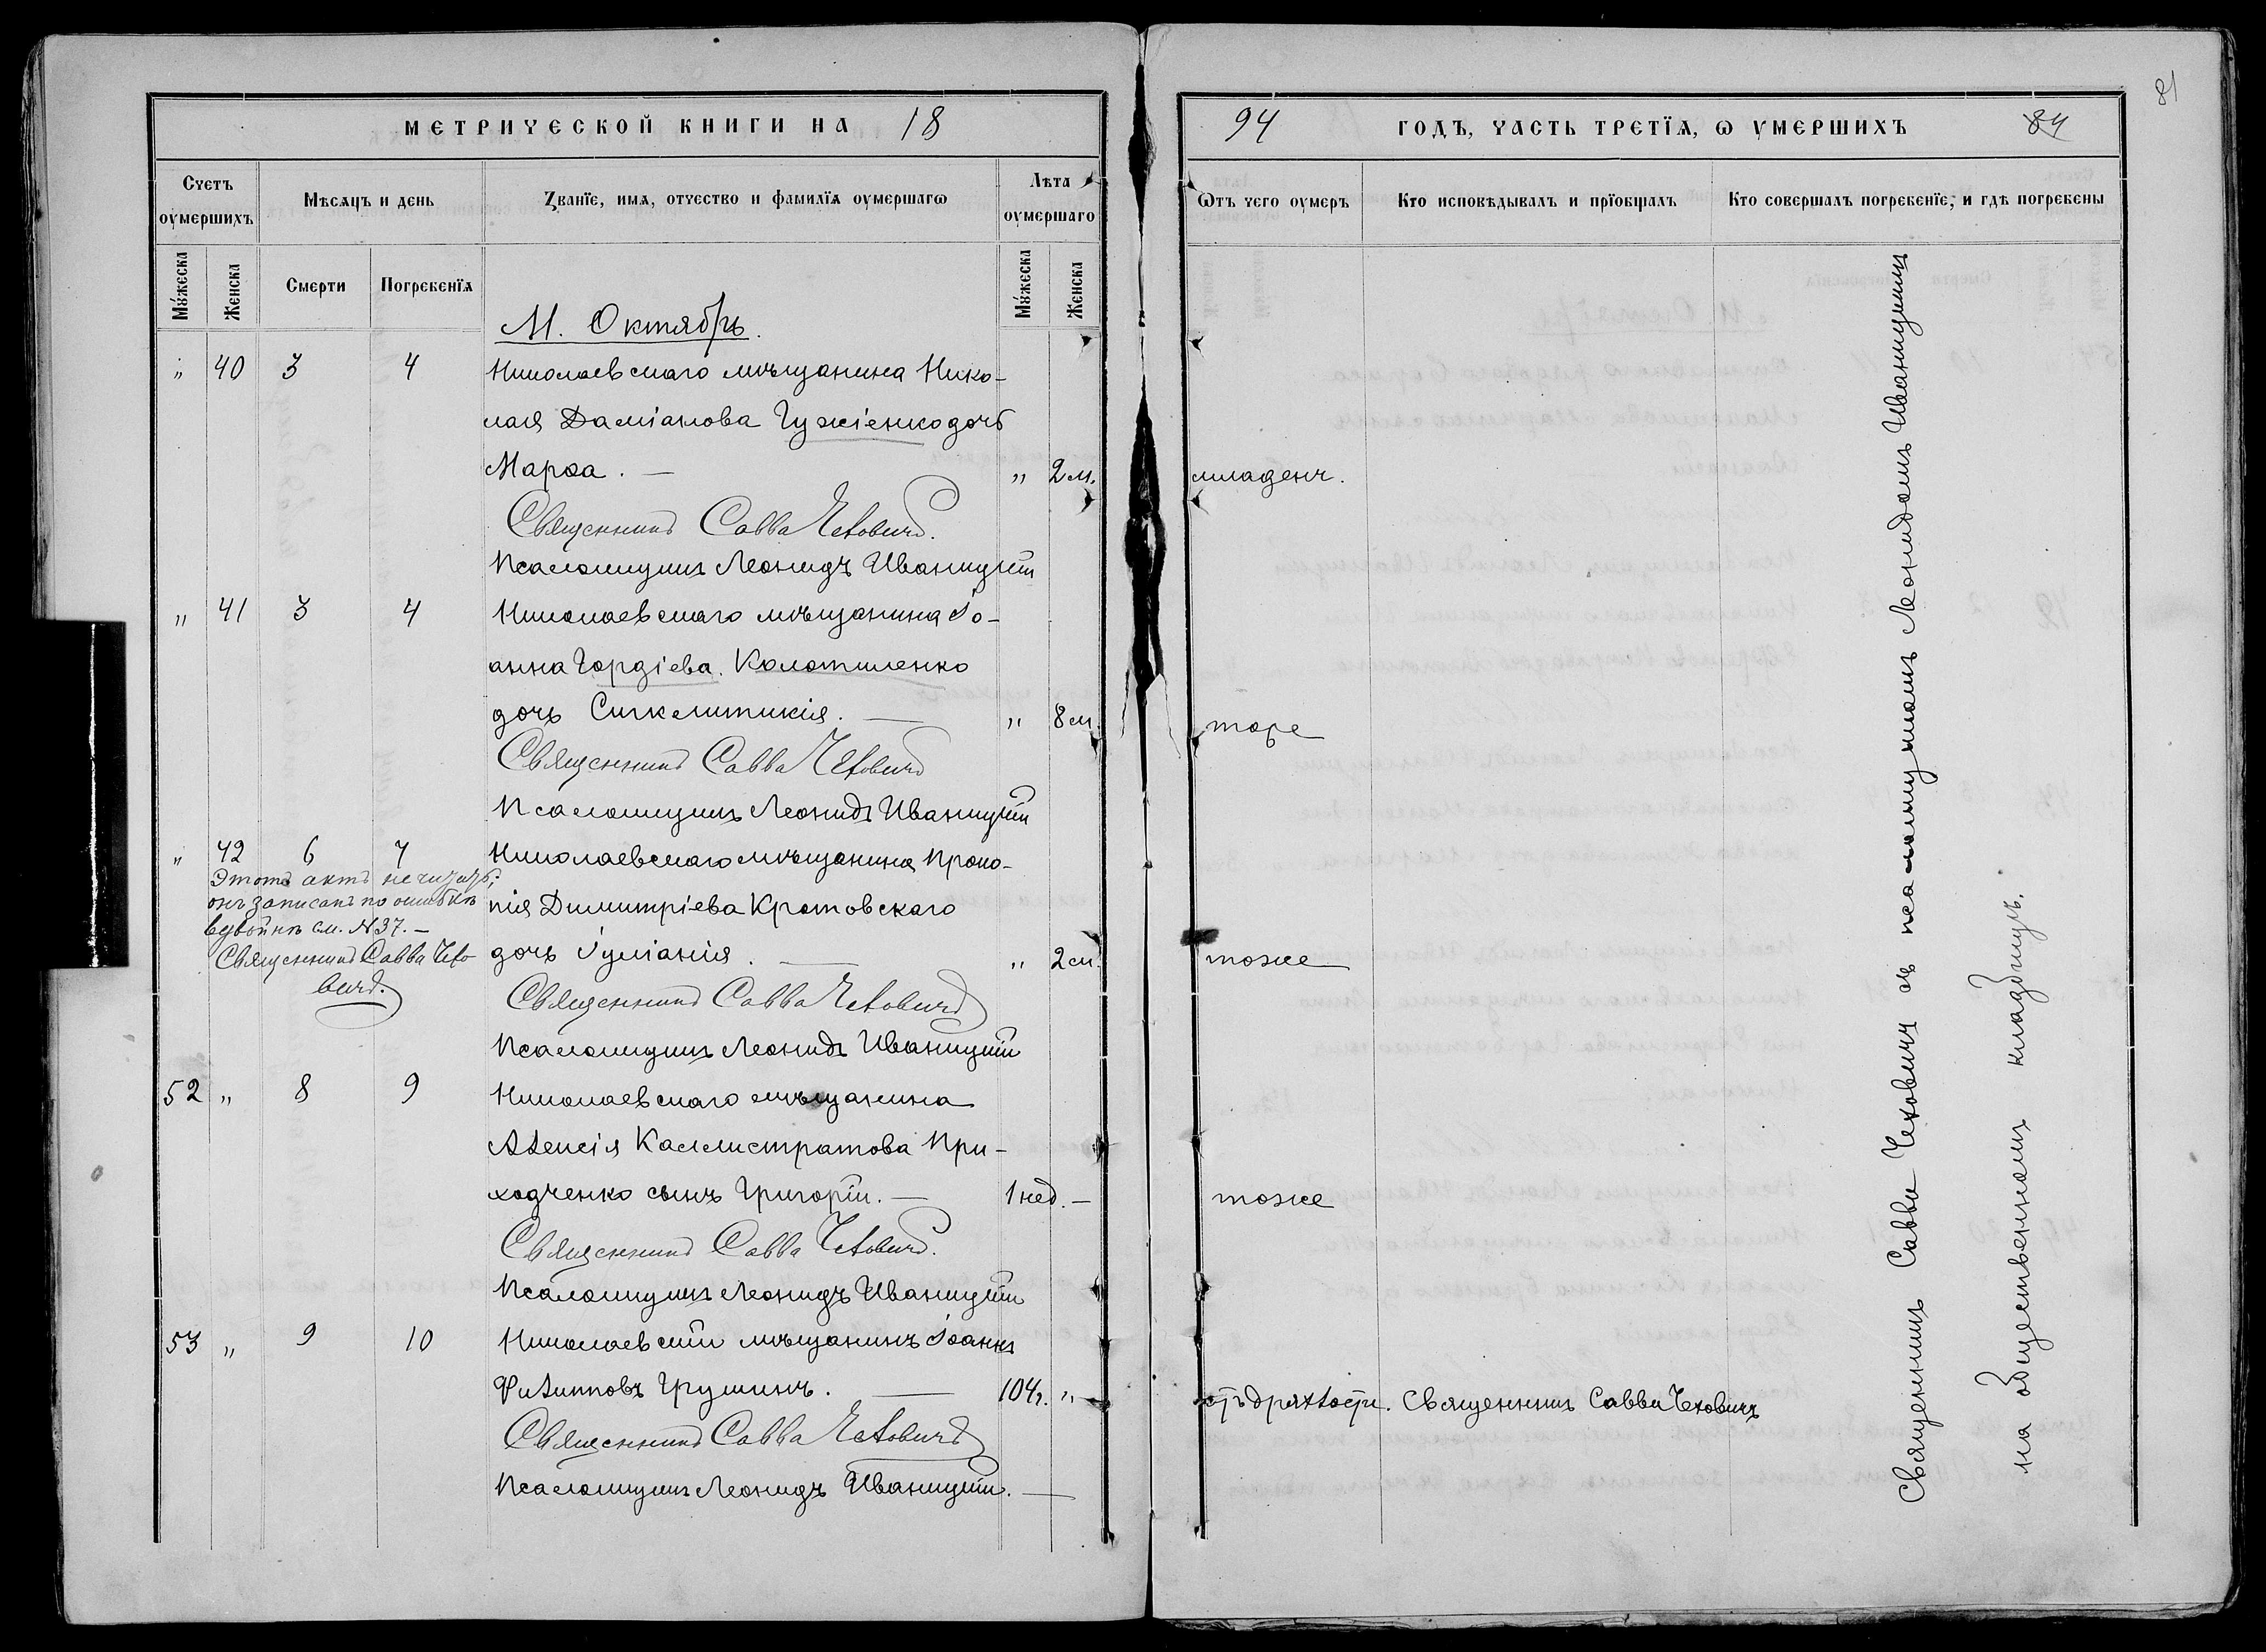 МЕТРИЧЕСКОЙ КНИГИ НА 18
Счетъ оумершихъ
Мѣсяцъ и день
Званїе, имя, отчество и фамилїя оумершагѡ
Лѣта оумершаго
Мꙋжеска
Женска
Смерти
Погребенїя
Мꙋжеска
Женска
М. Октябрь.
„ 40 3 4 Николаевскаго мѣщанина Нико-
лая Даміанова Гужіенко дочь
Марѳа. — „ 2 м.
Священникъ Савва Чеховичъ.
Псаломщикъ Леонидъ Иваницкій
„ 41 3 4 Николаевскаго мѣщанина Іо-
анна Гордіева. Колотиленко
дочь Сигклитикія. — „ 8 м.
Священникъ Савва Чеховичъ
Псаломщикъ Леонидъ Иваницкій
„ 42 6 7 Николаевскаго мѣщанина Проко-
пія Димитріева Кротовскаго
дочь Іуліанія. — „ 2 м.
Этотъ актъ не
онъ записанъ по ошибкѣ
вдвойнѣ см. № 37. —
Священникъ Савва Чехо
вичъ.
Священникъ Савва Чеховичъ
Псаломщикъ Леонидъ Иваницкій
52 „ 8 9 Николаевскаго мѣщанина
Алексія Каллистратова При-
ходченко сынъ Григорій. — 1 нед. —
Священникъ Савва Чеховичъ.
Псаломщикъ Леонидъ Иваницкій
53 „ 9 10 Николаевскій мѣщанинъ Іоаннъ
Филипповъ Грушинъ. — 104 г. „
Священникъ Савва Чеховичъ
Псаломщикъ Леонидъ Иваницкій. —
81
94 ГОДЪ, ЧАСТЬ ТРЕТЇЯ, Ѡ УМЕРШИХЪ 84
Ѿтъ чего оумеръ
Кто исповѣдывалъ и прїобщалъ
Кто совершалъ погребенїе, и гдѣ погребены
младенч.
тоже
тоже
тоже
отъ дряхлости. Священникъ Савва Чеховичъ
Священникъ Савва Чеховичъ съ псаломщикомъ Леонидомъ Иваницкимъ
на общественномъ кладбищѣ.